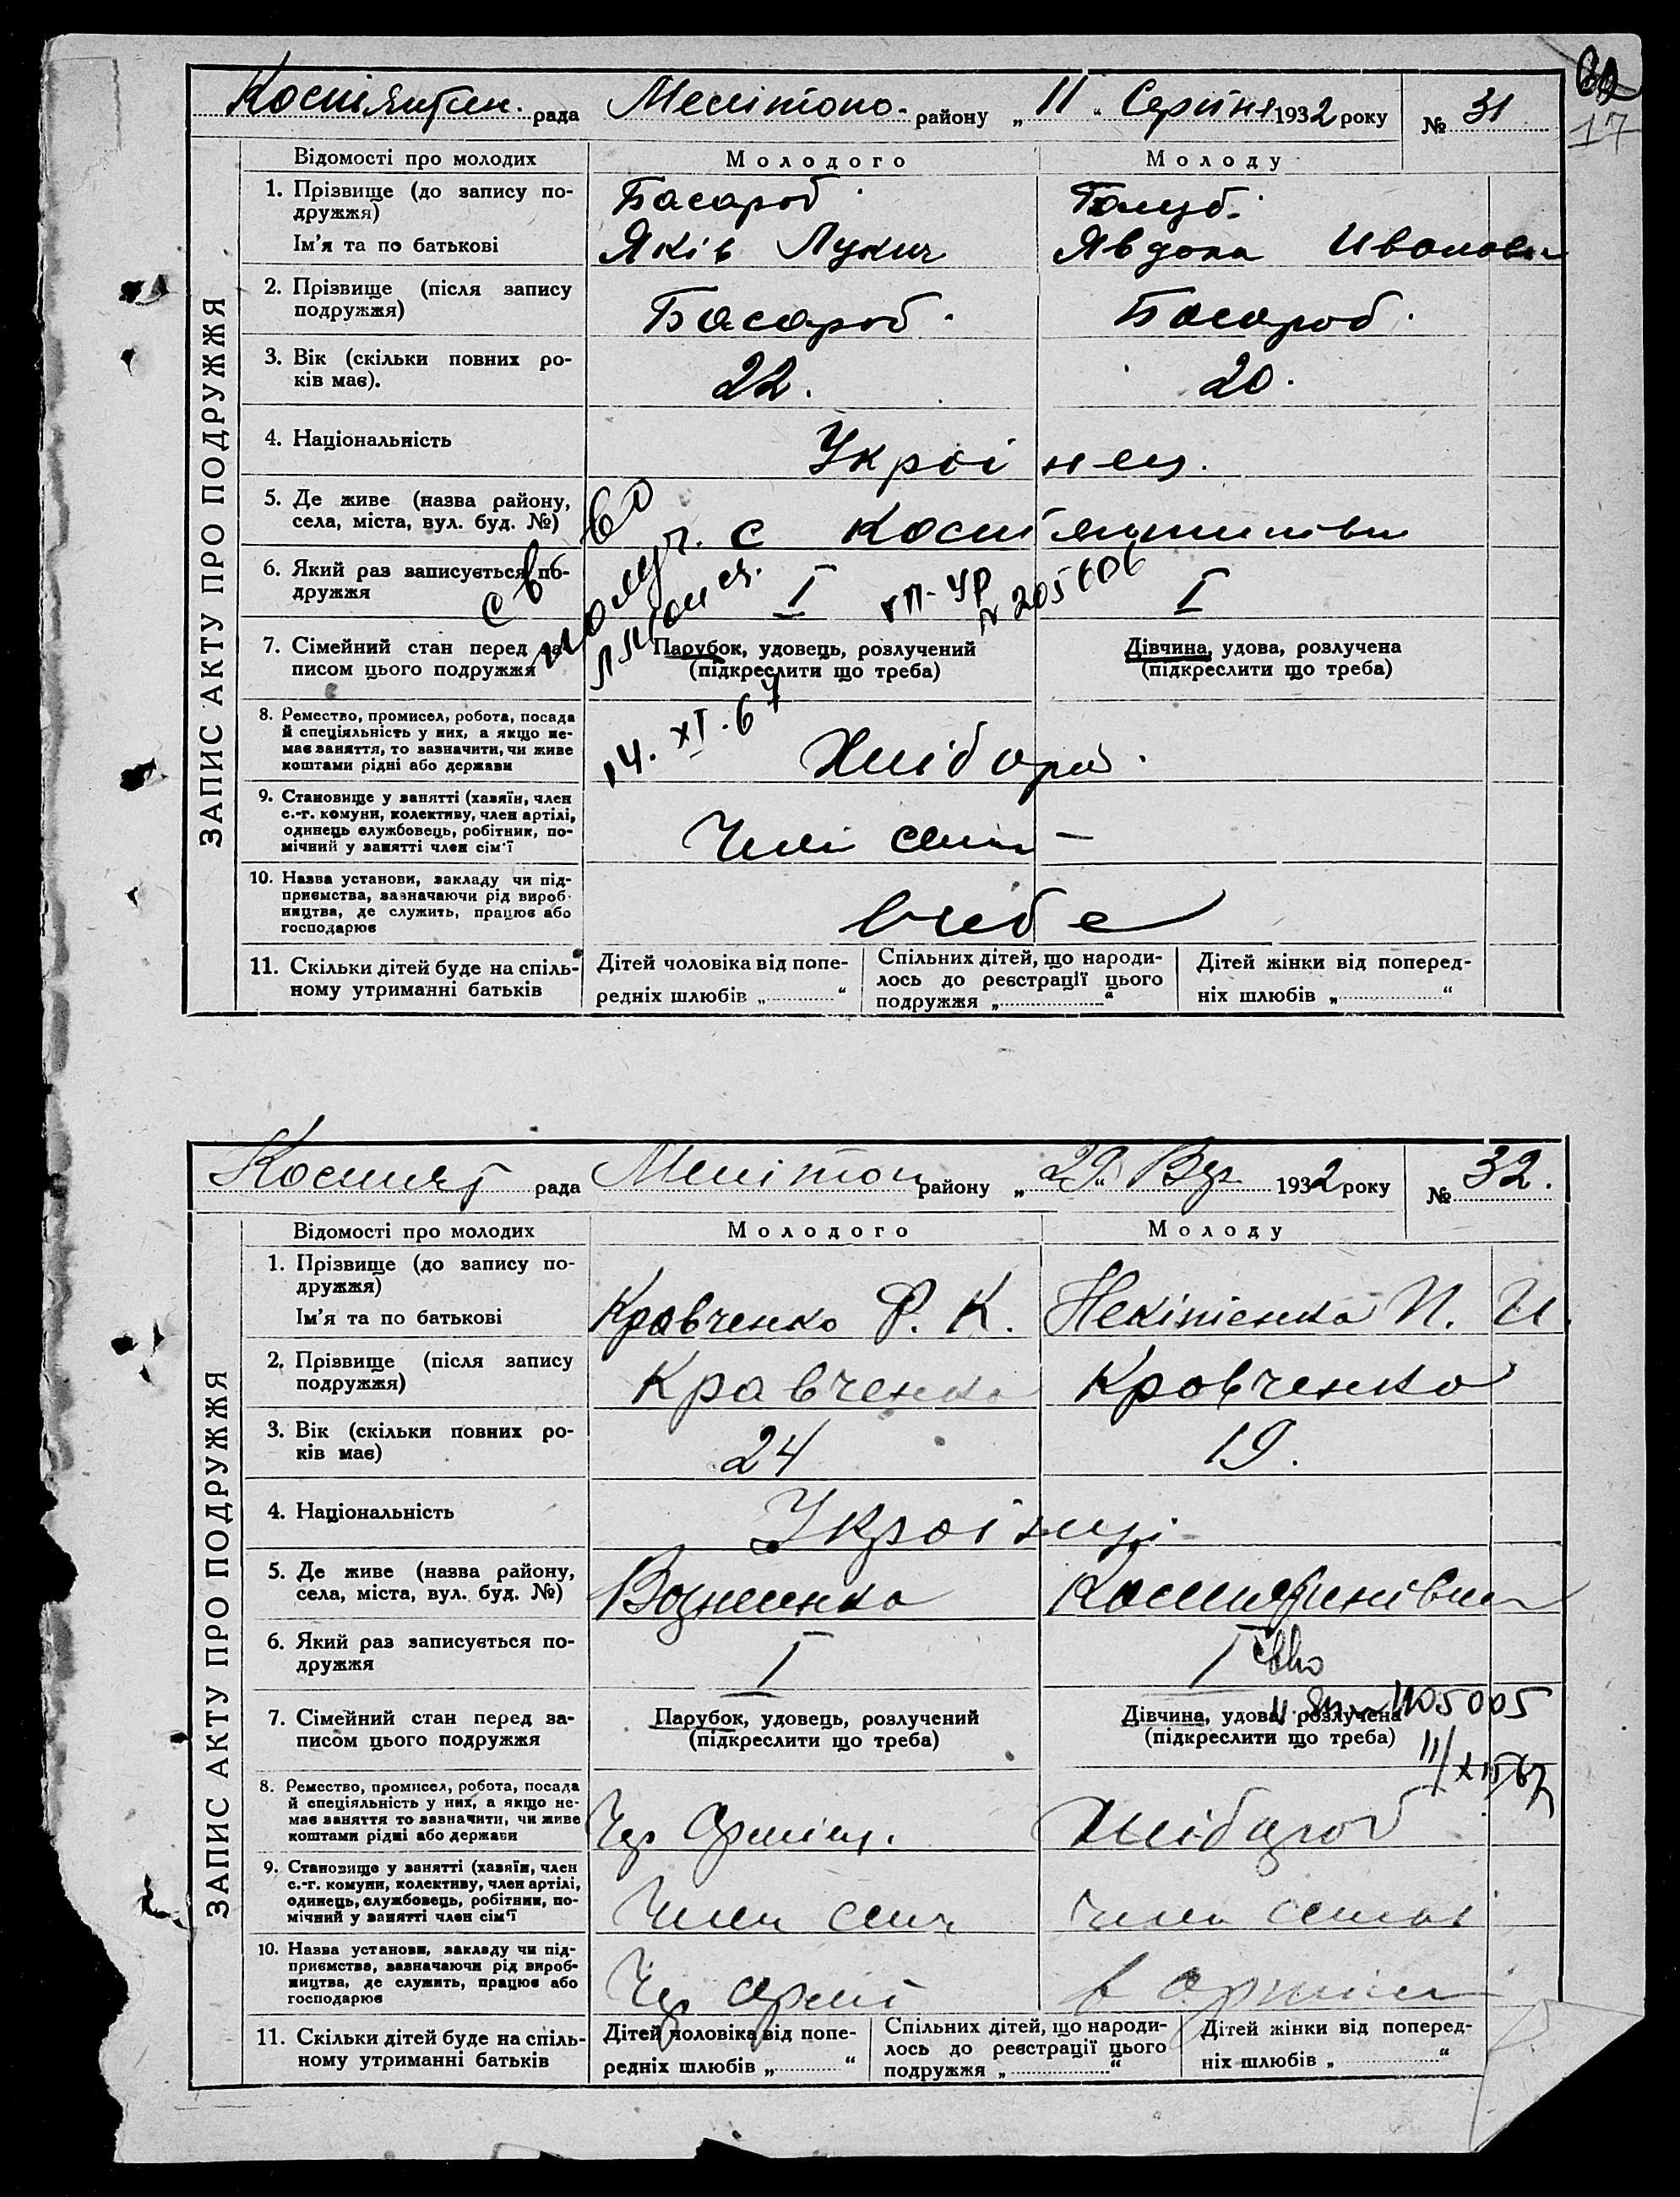 17
Костянтин. рада Мелітопо- району „ 11 " Серпня 1932 року № 31
ЗАПИС АКТУ ПРО ПОДРУЖЖЯ
Відомості про молодих Молодого Молоду
1. Прізвище (до запису по-
дружжя) Басараб Голуб.
Ім'я та по батькові Яків Лукич Явдоха Ивановн
2. Прізвище (після запису
подружжя) Басараб. Басараб.
3. Вік (скільки повних ро-
ків має). 22. 20.
4. Національність Украінец.
5. Де живе (назва району,
села, міста, вул. буд. №) с Костянтинівка
6. Який раз записується по-
дружжя I I
св во
получ.
УР № 205606
7. Сімейний стан перед за-
писом цього подружжя
Парубок, удовець, розлучений
(підкреслити що треба)
Дівчина, удова, розлучена
(підкреслити що треба)
14. XI. 67
8. Ремество, промисел, робота, посада
й спеціяльність у них, а якщо не-
має заняття, то зазначити, чи живе
коштами рідні або держави Хлібороб.
9. Становище у занятті (хазяїн, член
с.-г. комуни, колективу, член артілі,
одинець службовець, робітник, по-
мічний у занятті член сім'ї Член семи —
10. Назва установи, закладу чи під-
приємства, зазначаючи рід вироб-
ництва, де служить, працює або
господарює в себе
11. Скільки дітей буде на спіль-
ному утриманні батьків
Дітей чоловіка від попе-
редніх шлюбів „ “
Спільних дітей, що народи-
лось до реєстрації цього
подружжя „ “
Дітей жінки від поперед-
ніх шлюбів „ “
Костянт рада Мелітоп району „ 29 “ Вер. 1932 року № 32.
ЗАПИС АКТУ ПРО ПОДРУЖЖЯ
Відомості про молодих Молодого Молоду
1. Прізвище (до запису по-
дружжя)
Ім'я та по батькові Кравченко Ф. К. Некітенка П. И.
2. Прізвище (після запису
подружжя) Кравченко Кравченко
3. Вік (скільки повних ро-
ків має) 24 19.
4. Національність Украінці
5. Де живе (назва району,
села, міста, вул. буд. №) Вознесенка Костянтинівка
6. Який раз записується по-
дружжя I I
св во
1105005
7. Сімейний стан перед за-
писом цього подружжя
Парубок, удовець, розлучений
(підкреслити що треба)
Дівчина, удова, розлучена
(підкреслити що треба)
8. Ремество, промисел, робота, посада
й спеціяльність у них, а якщо не-
має заняття то зазначити, чи живе
коштами рідні або держави Чер Армієц. Хлібороб
9. Становище у занятті (хазяїн, член
с.-г. комуни, колективу, член артілі,
одинець, службовець, робітник, по-
мічний у занятті член сім'ї Член семи Член семьі
10. Назва установи, закладу чи під-
приємства, зазначаючи рід вироб-
ництва, де служить, працює або
господарює Чер армії в артілі
11. Скільки дітей буде на спіль-
ному утриманні батьків
Дітей чоловіка від попе-
редніх шлюбів „ “
Спільних дітей, що народи-
лось до реєстрації цього
подружжя „ “
Дітей жінки від поперед-
ніх шлюбів „ “